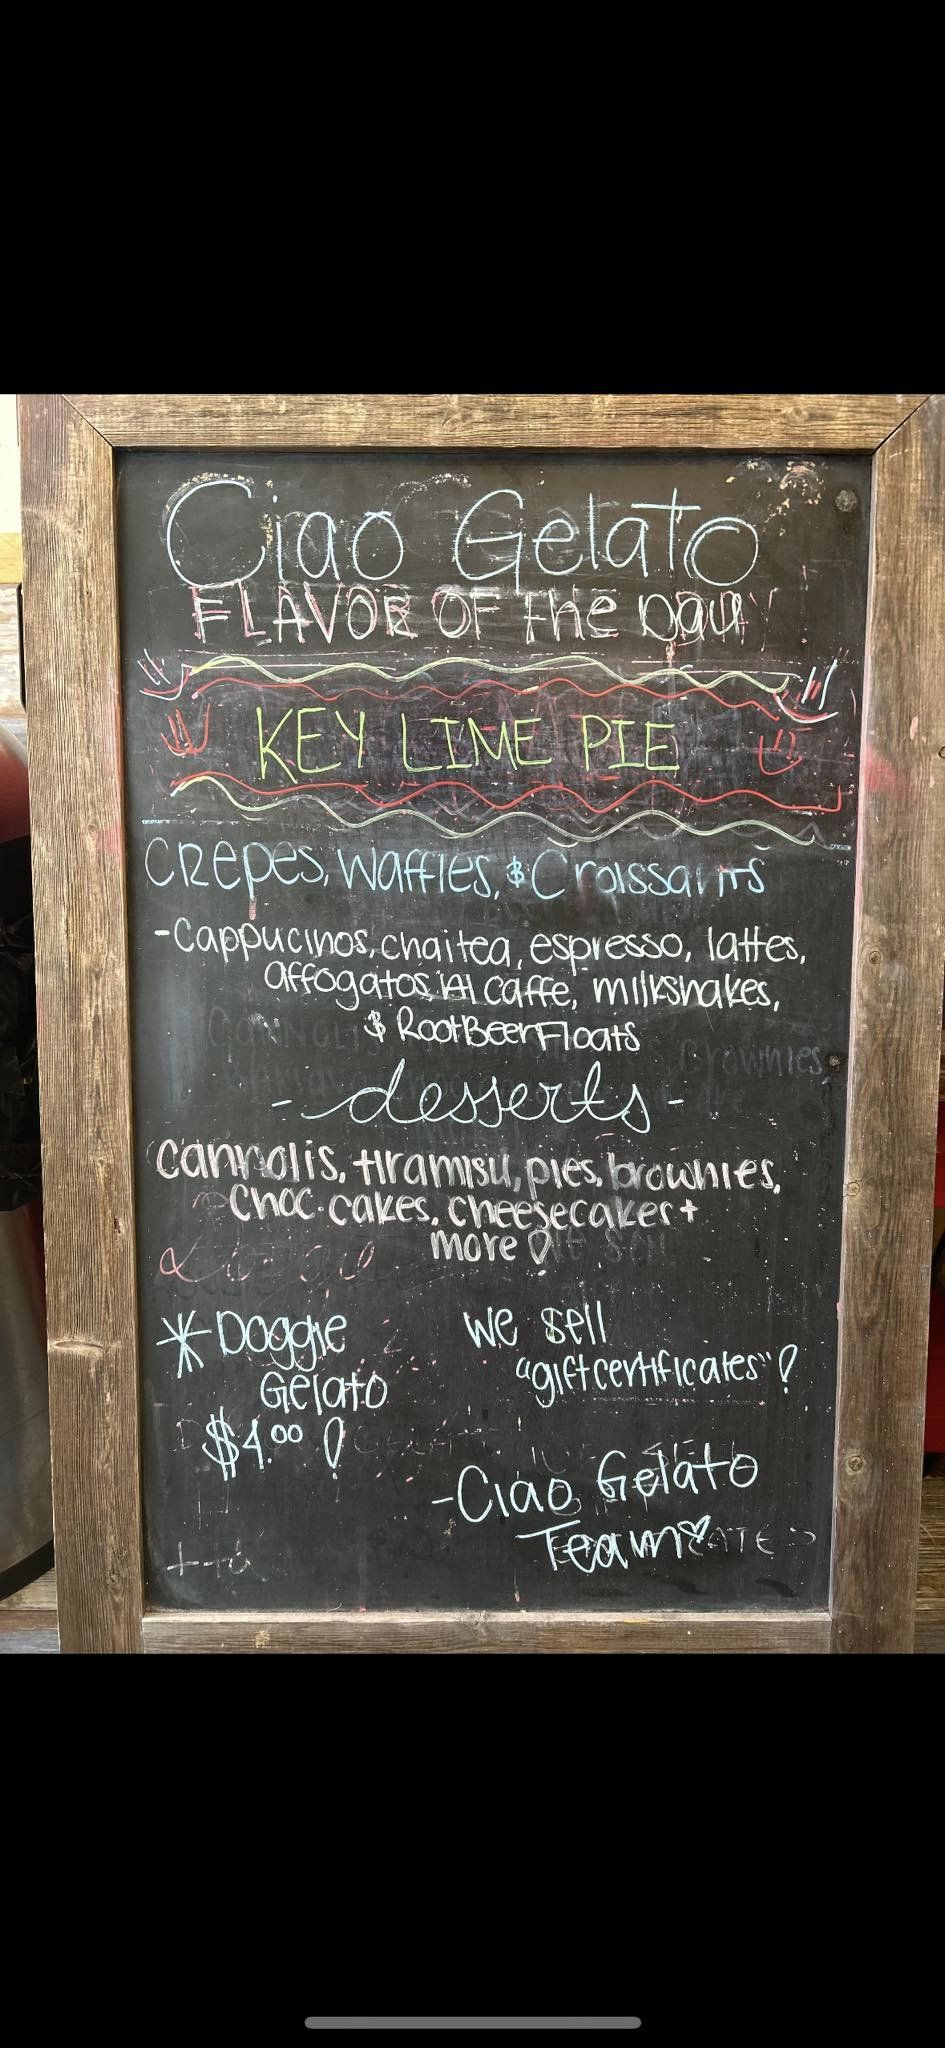 Ciao Gelato
FLAVOR OF the Day
KEY LIME PIE
Crepes, Waffles, & Croissants
-Cappucinos, chai tea, espresso, lattes,
affogatos Al caffe, milkshakes,
& RootBeer Floats
-desserts-
cannolis, tiramisu, pies, brownies,
choc. cakes, cheesecakes +
more!
* Doggie
Gelato
$4.00!
we sell
"gift certificates"!
-Ciao Gelato
Team